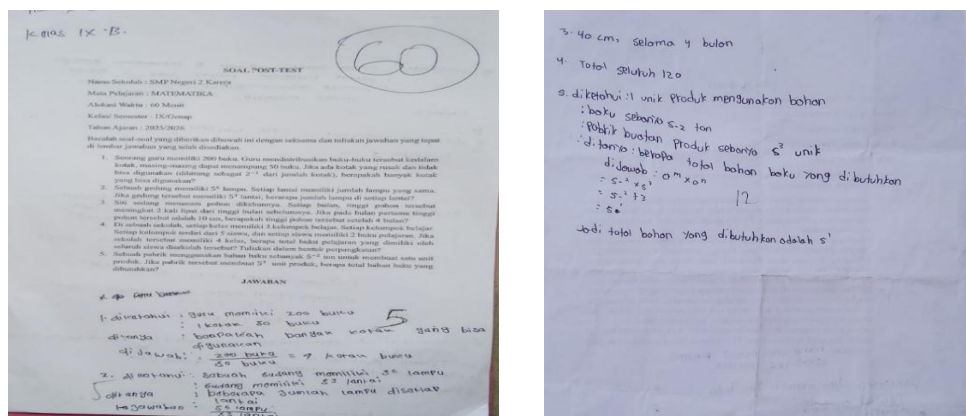 Kelas IX B.
60
SOAL POST-TEST
Nama Sekolah : SMP Negeri 2
Mata Pelajaran : MATEMATIKA
Alokasi Waktu : 60 Menit
Kelas/ Semester : IX/Genap
Tahun Ajaran : 2025/2026
Bacalah soal-soal yang diberikan dibawah ini dengan seksama dan tuliskan jawaban yang tepat
di lembar jawaban yang telah disediakan.
1. Seorang guru memiliki 200 buku. Guru mendistribusikan buku-buku tersebut kedalam
kotak, masing-masing dapat menampung 50 buku. Jika ada kotak yang rusak dan tidak
bisa digunakan (dihitung sebagai 2⁻² dari jumlah kotak), berapakah banyak kotak
yang bisa digunakan?
2. Sebuah gedung memiliki lampu. Setiap lantai memiliki jumlah lampu yang sama.
Jika gedung tersebut memiliki lantai, berapa jumlah lampu di setiap lantai?
3. Siti sedang menanam pohon dikebunnya. Setiap bulan, tinggi pohon tersebut
meningkat 2 kali lipat dari tinggi bulan sebelumnya. Jika pada bulan pertama tinggi
pohon tersebut adalah 10 cm, berapakah tinggi pohon tersebut setelah 4 bulan?
4. Di sebuah sekolah, setiap kelas memiliki 3 kelompok belajar. Setiap kelompok belajar
Setiap kelompok terdiri dari 5 siswa, dan setiap siswa memiliki 2 buku pelajaran. Jika
sekolah tersebut memiliki 4 kelas, berapa total buku pelajaran yang dimiliki oleh
seluruh siswa disekolah tersebut? Tuliskan dalam bentuk perpangkatan?
5. Sebuah pabrik menggunakan bahan baku sebanyak 5⁻² ton untuk membuat satu unit
produk. Jika pabrik tersebut membuat 5³ unit produk, berapa total bahan baku yang
dibutuhkan?
JAWABAN
1. diketahui : guru memiliki 200 buku
: 1 kotak 50 buku
5
ditanya : banyak kotak yang bisa
digunakan
dijawab : 200 buku
50 buku
= 4 kotak buku
2. diketahui : sebuah gudang memiliki lampu
: gudang memiliki lantai
5
ditanya : beberapa jumlah lampu disetiap
lantai
jawaban : lampu
lantai
3. 40 cm, selama 4 bulan
4. Total seluruh 120
5. diketahui : 1 unik produk mengunakan bahan
: baku sebanyak 5⁻² ton
: pabrik buatan produk sebanyak 5³ unik
: ditanya : berapa total bahan baku yang dibutuhkan
dijawab : a^m × a^n
= 5⁻² × 5³
12
= 5⁻² + 3
= 5¹
Jadi total bahan yang dibutuhkan adalah 5¹